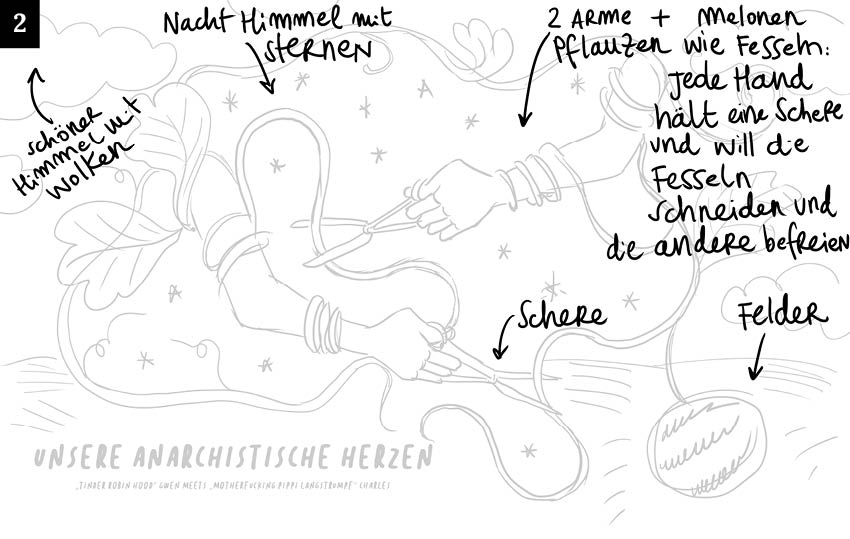 2
Nacht Himmel mit
STERNEN
2 ARME + Melonen
Pflanzen wie Fesseln:
Jede Hand
hält eine Schere
und will die
Fesseln
schneiden und
die andere befreien
schöner
Himmel mit
Wolken
Schere
Felder
UNSERE ANARCHISTISCHE HERZEN
„TINDER ROBIN HOOD“ GWEN MEETS „MOTHERFUCKING PIPPI LANGSTRUMPF“ CHARLES